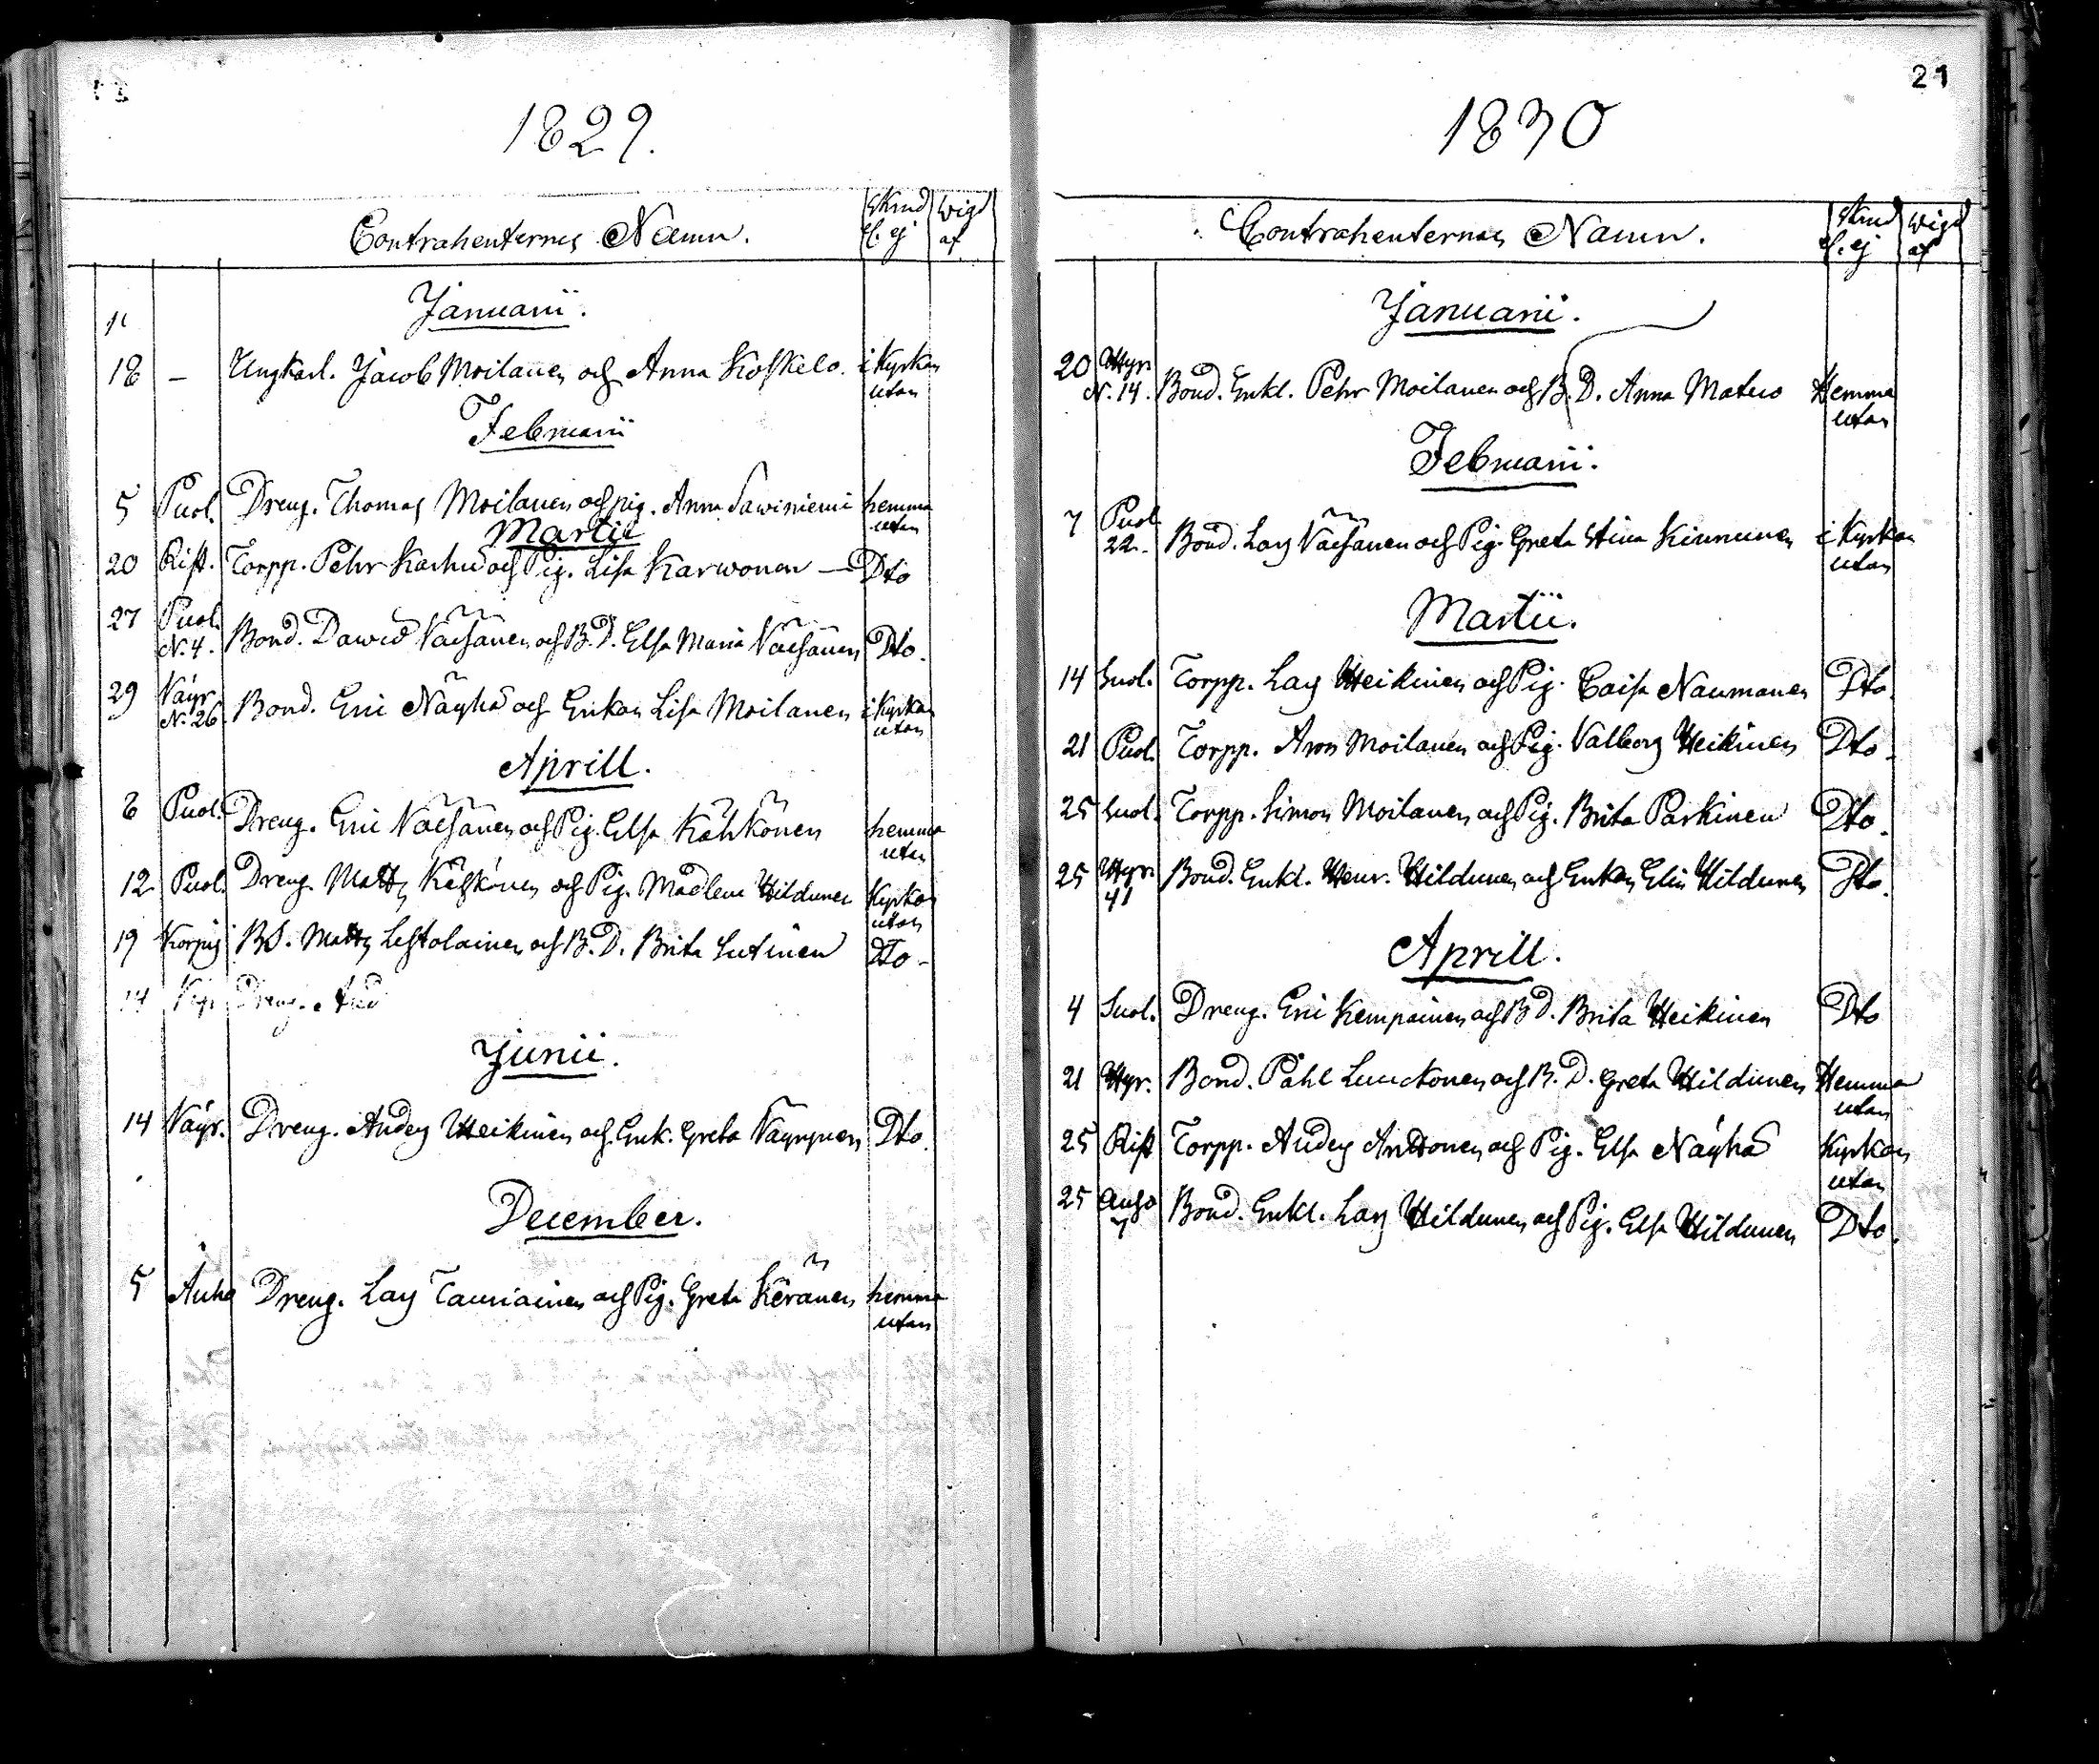 1829.
Contrahenternes Namn.
Skrud el. ej
wigd af
Januarii.
11
18 - Ungkarl. Jacob Moilanen och Anna Koskelo. i Kyrkan utan
Februarii
5 Puol. Dreng. Thomas Moilanen och pig. Anna Sawiniemi hemma utan
Martii
20 Rist. Torpp. Pehr Karhu och Pig. Lisa Karwonen — Dto
27 Puol. N. 4. Bond. Dawid Väisänen och B. D. Elsa Maria Väisänen Dto.
29 Näyr N. 26 Bond. Eric Näyhä och Enkan Lisa Moilanen i Kyrkan utan
Aprill.
6 Puol. Dreng. Eric Väisänen och Pig. Elsa Kähkönen hemma utan
12 Puol. Dreng. Matts och Pig. Madlena Hildunen Kyrkan utan
19 B.S. Matts Lestolainen och B. D. Brita Lutinen Dto -
14 Dreng. And
Junii.
14 Näyr. Dreng. Anders Heikinen och Enk. Greta Väyrynen Dto.
December.
5 Anho Dreng. Lars Tauriainen och Pig. Greta Keränen hemma utan
21
1830
Contrahenternas Namn.
Skrud el. ej
wigd af
Januarii.
20 Hyr. N. 14. Bond. Enkl. Pehr Moilanen och B. D. Anna Matero Hemma utan
Februarii.
7 Puol 22. Bond. Lars Väisänen och Pig. Greta Stina Kinnunen i Kyrkan utan
Martii.
14 Suol. Torpp. Lars Heikinen och Pig. Caisa Naumanen Dto.
21 Puol. Torpp. Aron Moilanen och Pig. Valborg Heikinen Dto.
25 Suol. Torpp. Simon Moilanen och Pig. Brita Parkinen Dto.
25 Hyr. 41 Bond. Enkl. Henr. Hildunen och Enkan Elin Hildunen Dto.
Aprill.
4 Suol. Dreng. Eric Kempainen och B D. Brita Heikinen Dto
21 Hyr. Bond. Påhl Luuckonen och B. D. Greta Hildunen Hemma utan
25 Rist Torpp. Anders Anttonen och Pig. Elsa Näyhä Kyrkan utan
25 Anho 7 Bond. Enkl. Lars Hildunen och Pig. Elsa Hildunen Dto.